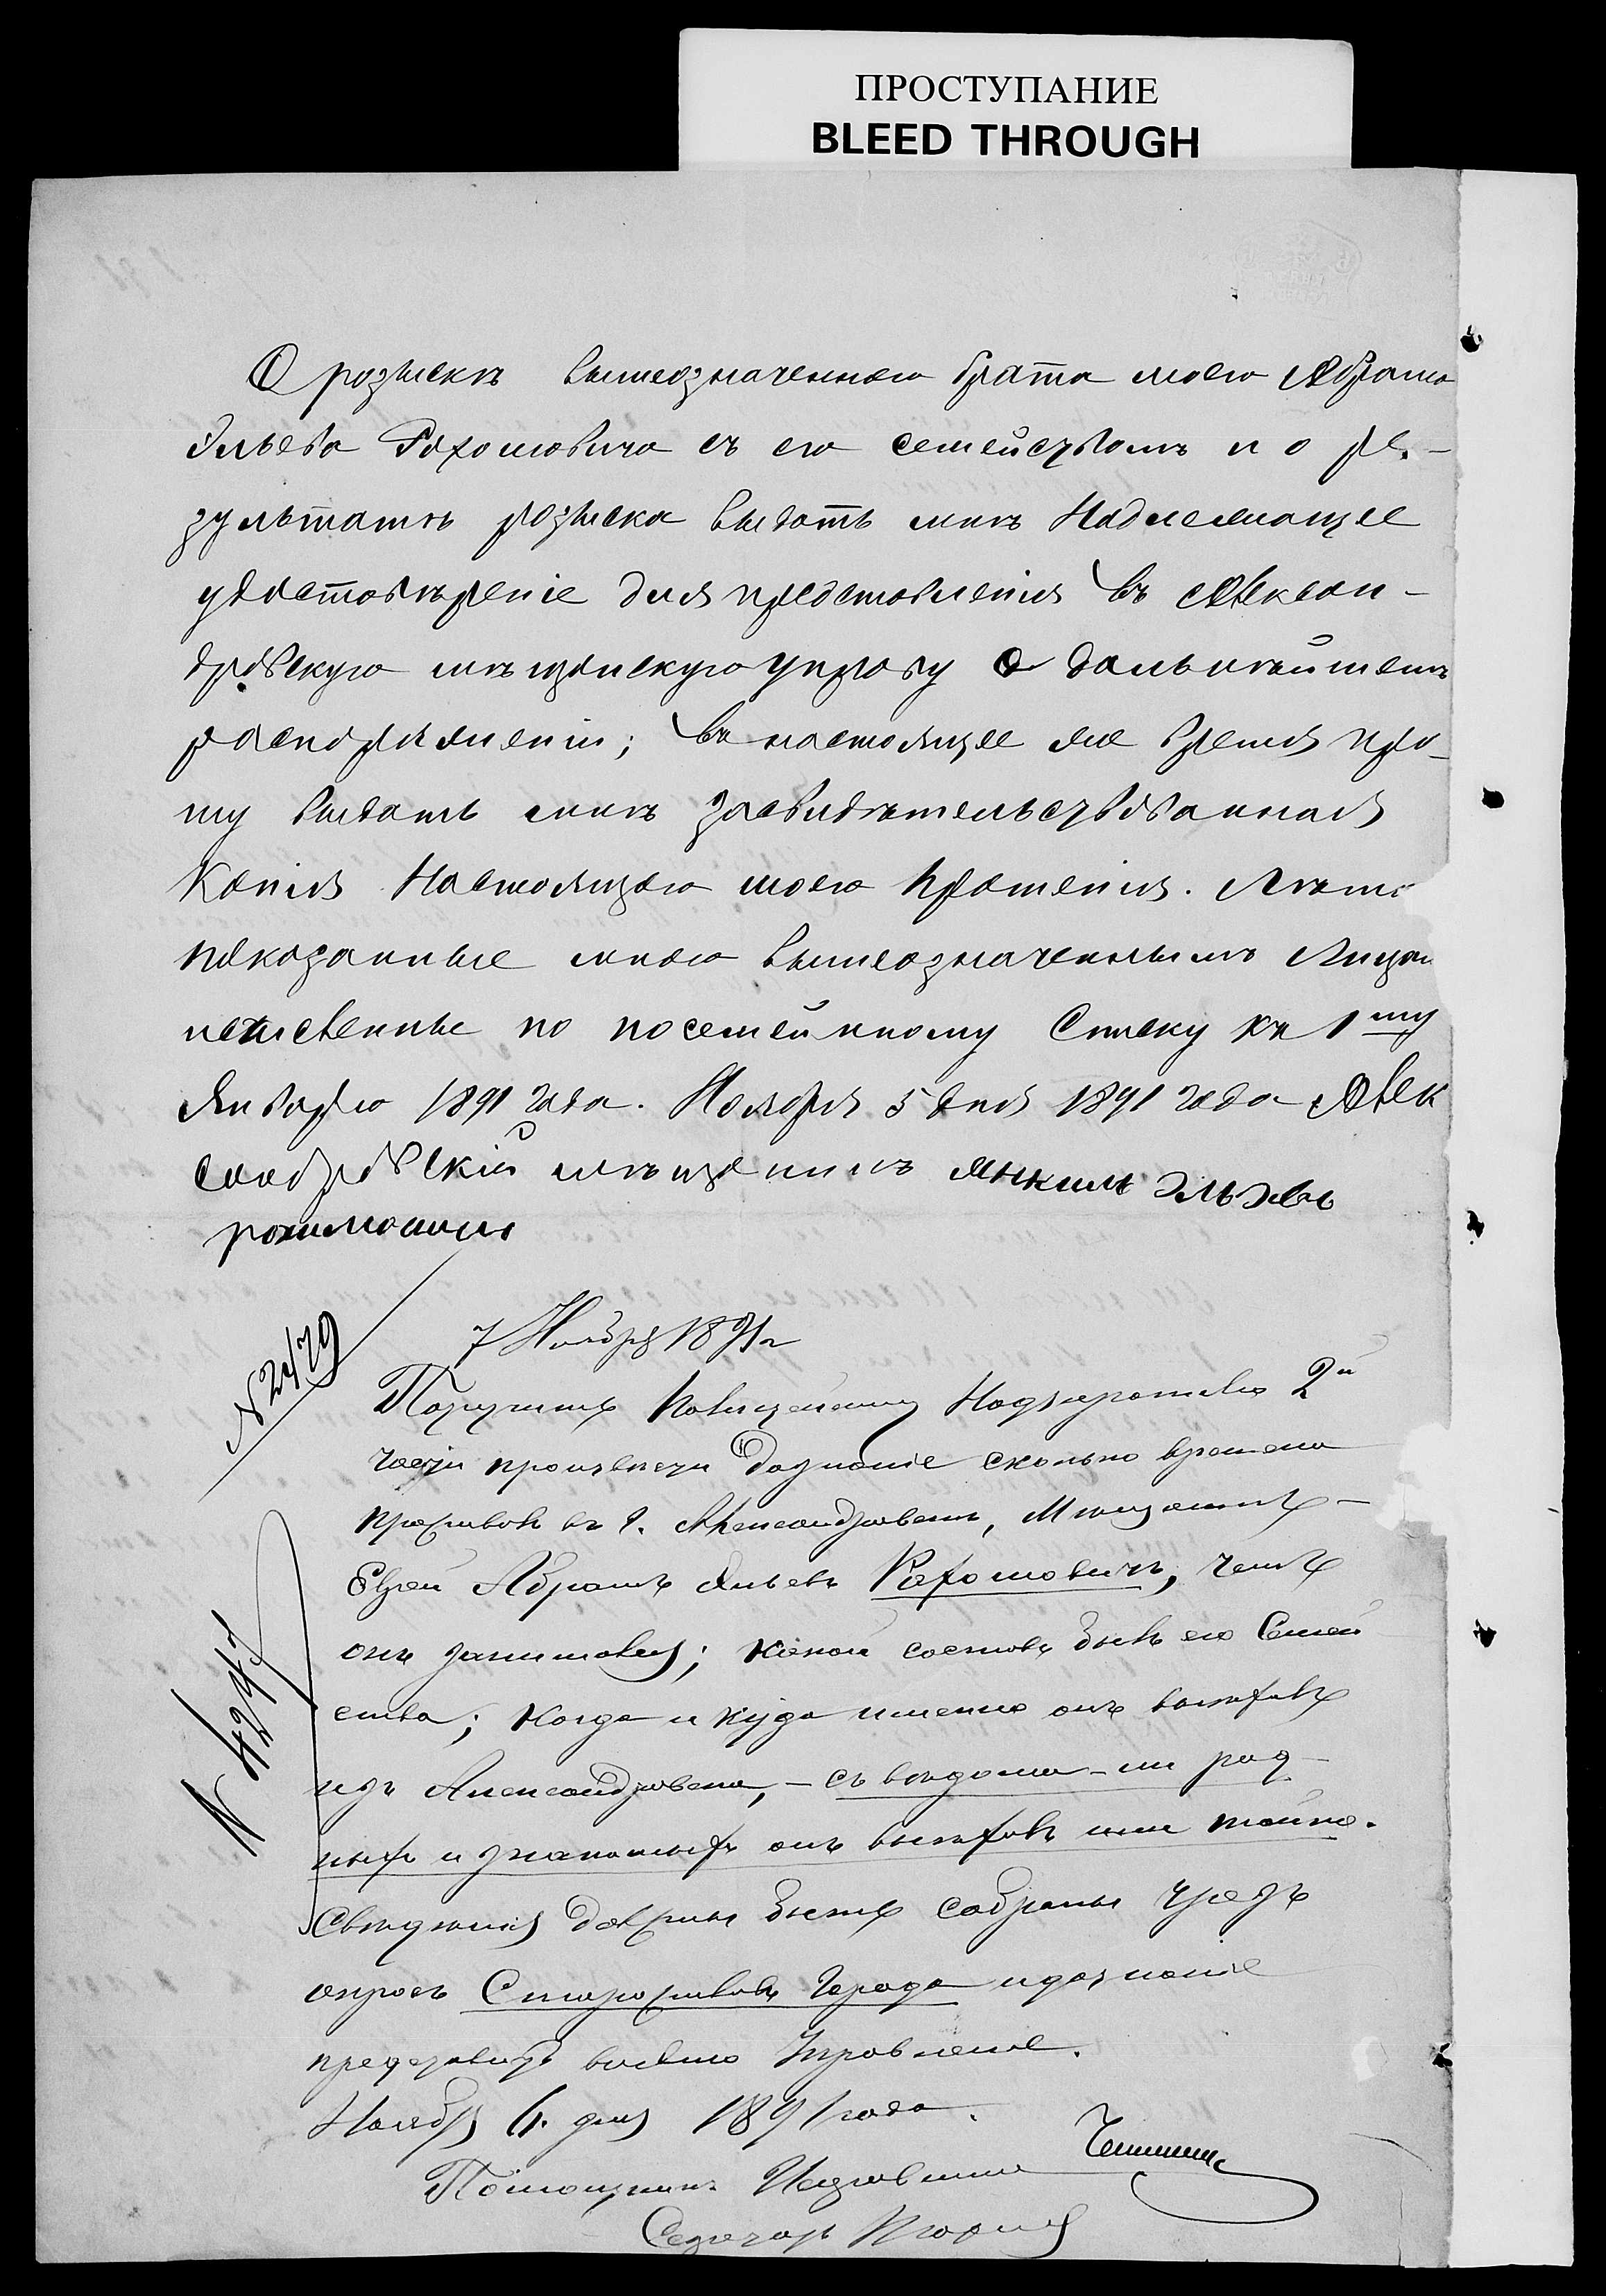 ПРОСТУПАНИЕ
BLEED THROUGH
О розыскѣ вышеозначеннаго брата моего Абрама
Эльева Рахомовича съ его семействомъ и о ре-
зультатѣ розыска выдать мнѣ Надлежащее
удостовѣреніе для представленія въ Алексан-
дровскую мѣщанскую управу о дальнѣйшемъ
распоряженіи; въ настоящее же время про-
шу выдать мнѣ засвидѣтельствованная
Копія Настоящаго моего Прошенія. Лѣта
показанные мною вышеозначеннымъ Лицам
по посемейнному Списку къ 1му
Января 1891 года. Ноября 5 дня 1891 года Алек
сандровскій мѣщанинъ Янкиль Эльевъ
№ 2479
7 Ноября 1891 г
Поручить Полицейскому Надзирателю 2й
части произвести Дознаніе сколько времени
проживалъ въ г. Александровскѣ, Мѣщанинъ-
Еврей Абрамъ Эльевъ Рахомовичъ, чемъ
онъ занимался; какой составъ былъ его Семей
ства; когда и куда именно онъ выехалъ
изъ Александровска, - съ вѣдома-ли род
ныхъ и знакомыхъ онъ выехалъ или тайно.
Свѣдѣнія должны быть собраны чрезъ
опросъ Старожиловъ Города и дознаніе
представить въ Управленіе.
Ноября 6. дня 1891 года.
Помощникъ Исправника
Секретарь